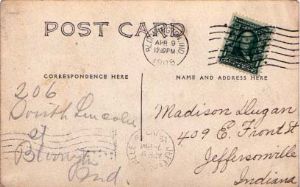 POST CARD
APR 9
1908
CORRESPONDENCE HERE
NAME AND ADDRESS HERE
206
South Lincoln
Ind.
Madison Dugan
409 E Front St
Jeffersonville
Indiana